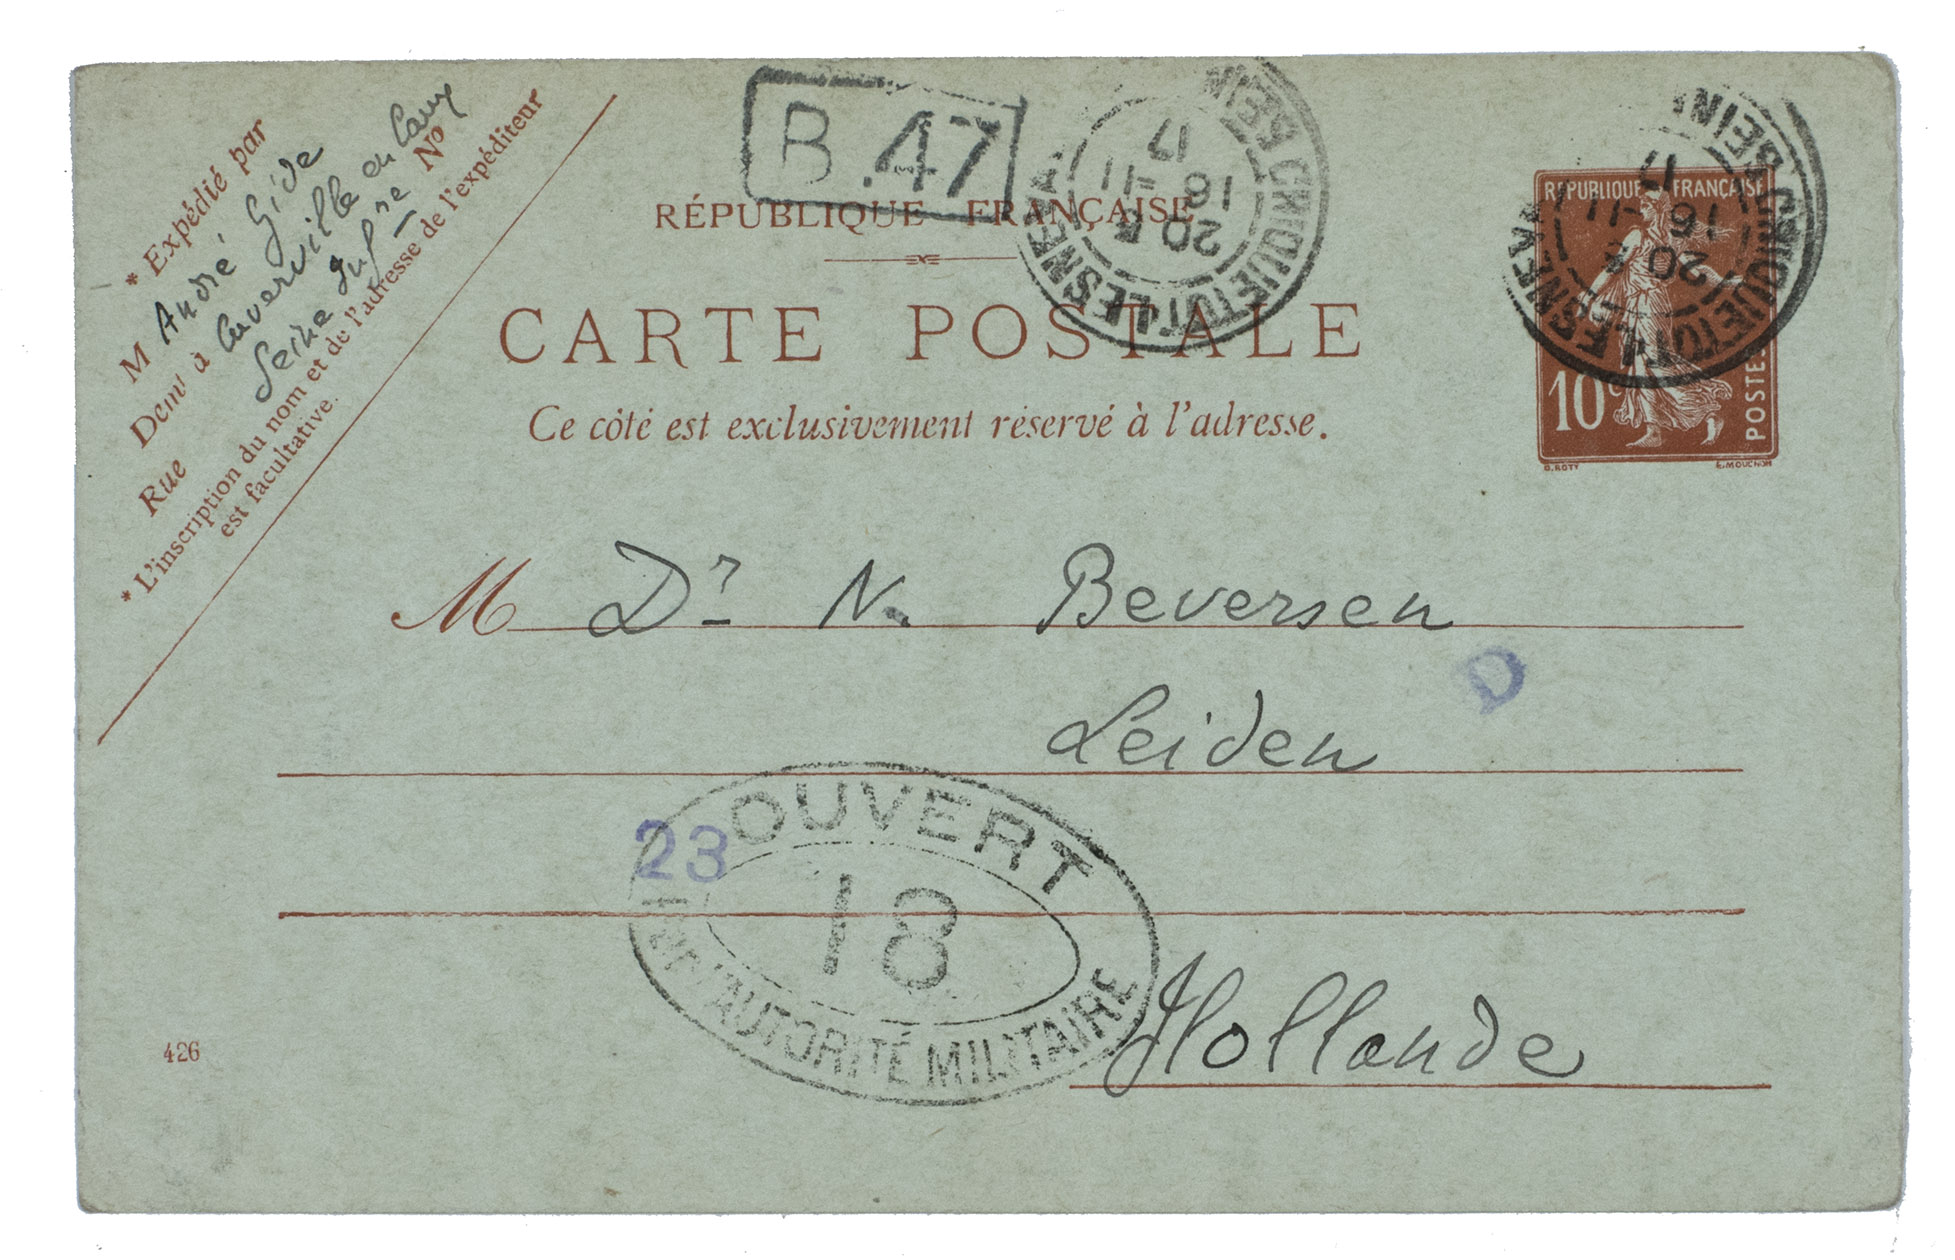 * Expédié par
M André Gide
Demt à Cuverville en Caux
Seine Infre
Rue Nº
* L'inscription du nom et de l'adresse de l'expéditeur
est facultative.
B.47
RÉPUBLIQUE FRANÇAISE
CARTE POSTALE
Ce côté est exclusivement réservé à l'adresse.
CRIQUETOT-LESNEVAL
20
16 -11
17
RÉPUBLIQUE FRANÇAISE
10c
POSTES
O. ROTY E. MOUCHON
CRIQUETOT-LESNEVAL
20
16 -11
17
M Dr N. Beversen
D
Leiden
23
OUVERT
18
PAR L'AUTORITÉ MILITAIRE
Hollande
426